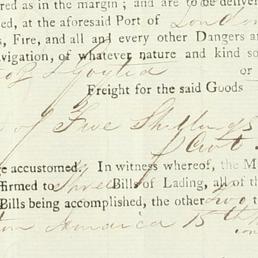 red as in the margin; and are to be deliver
d, at the aforesaid Port of London
s, Fire, and all and every other Dangers a
avigation, of whatever nature and kind so
or
Freight for the said Goods
of Five Shillings
e accustomed. In witness whereof, the M
ffirmed to Three Bills of Lading, all of th
Bills being accomplished, the other two
Jamaica 15th